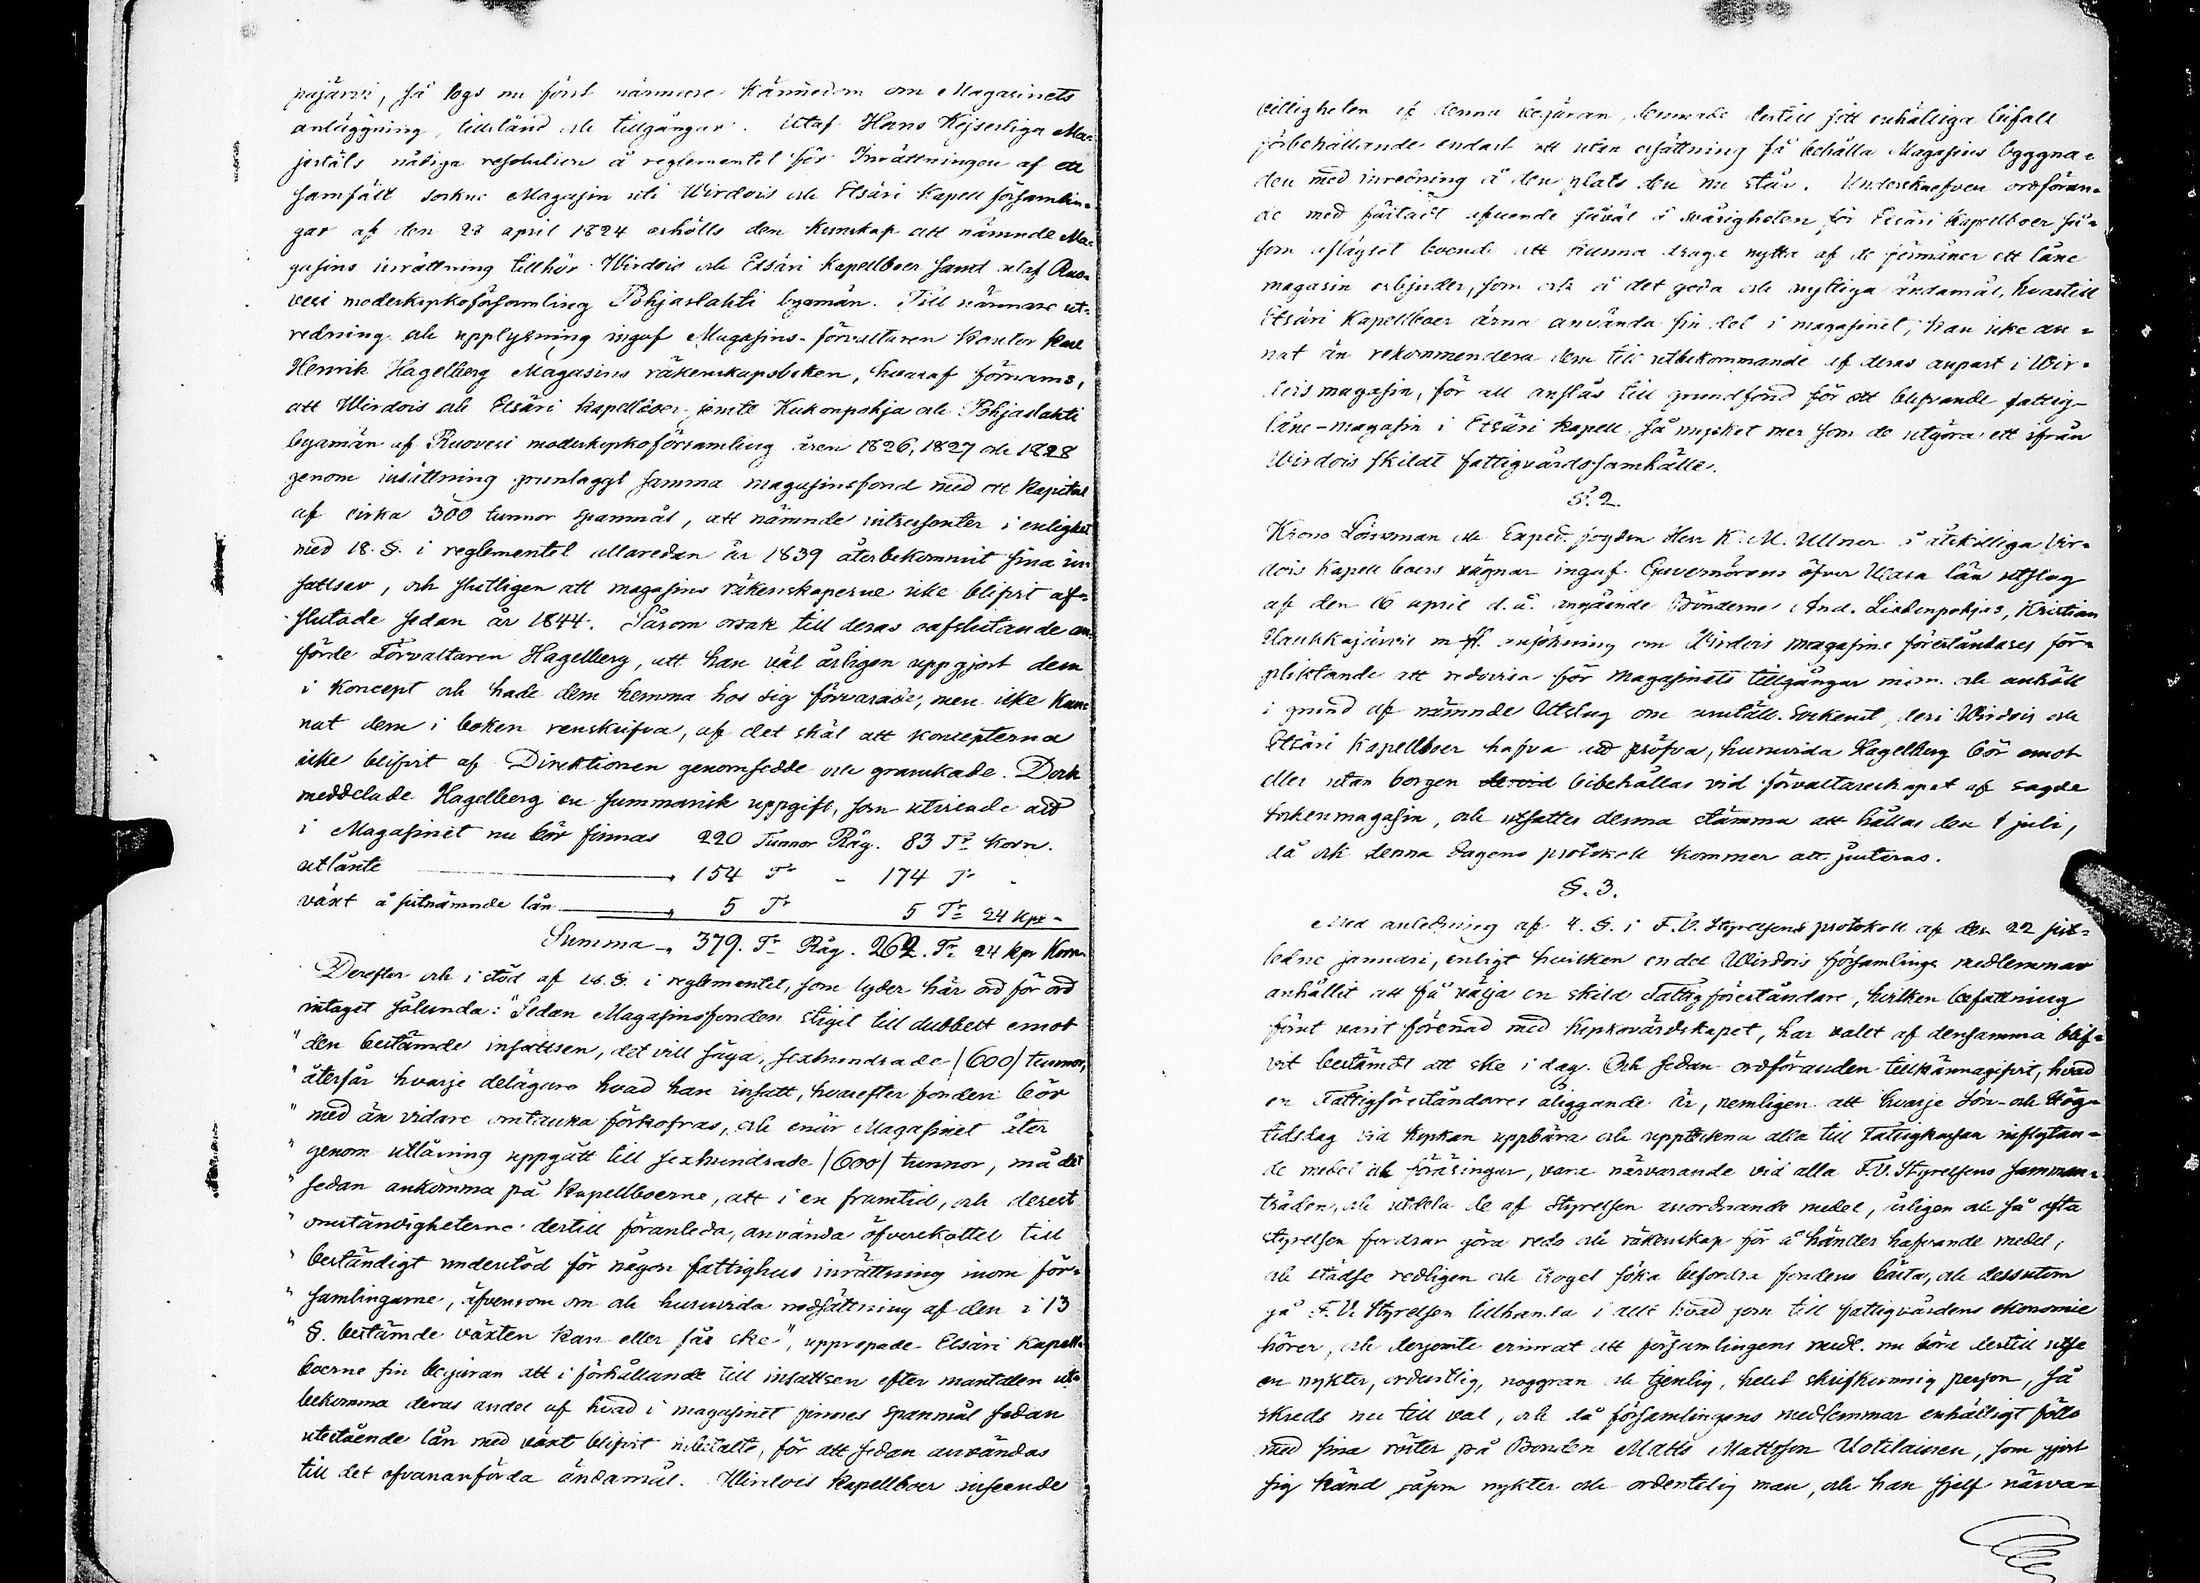 pajärvi, så togs nu först närmare kännedom om Magasinets
anläggning, tillstånd och tillgångar. Utaf Hans Kejserliga Ma=
jestäts nådiga resolution å reglementet för Inrättningen af ett
samfält sockne Magasin uti Wirdois och Etsäri Kapell församlin=
gar af den 28 april 1824 erhölls den kunskap att nämnde Ma=
gasins inrättning tillhör Wirdois och Etsäri kapellboer samt utaf Ruo=
vesi moderkyrkoförsamling Pohjaslahti byamän. Till närmare ut=
redning och upplysning ingaf Magasins-förvaltaren Kantor Karl
Henrik Hagelberg Magasins räkenskapsboken, hvaraf förnams,
att Wirdois och Etsäri kapellboer jemte Kukonpohja och Pohjaslahti
byamän af Ruovesi moderkyrkoförsamling åren 1826, 1827 och 1828
genom insättning grunlaggt samma magasinsfond med ett kapital
af cirka 300 tunnor spanmål, att nämnde intressenter i enlighet
med 18. §. i reglementet allaredan år 1839 återbekommit sina in
sattser, och slutligen att magasins räkenskaperne icke blifvit af=
slutade sedan år 1844. Såsom orsak till deras oafslutande an=
förde Förvaltaren Hagelberg, att han väl årligen uppgjort dem
i Koncept och hade dem hemma hos sig förvarade, men icke kun=
nat dem i boken renskrifva, af det skäl att koncepterna
icke blifvit af Direktionen genomsedde och granskade. Dock
meddelade Hagelberg en summarisk uppgift, som utvisade att
i Magasinet nu bör finnas 220 Tunnor Råg. 83 Tr Korn.
utlånte 154 Tr - 174 Tr -
växt å sistnämnde lån 5 Tr 5 Tr 24 kpr -
Summa 379. Tr Råg. 262. Tr 24 kpr Korn.
Derefter och i stöd af 18. §. i reglementet, som lyder här ord för ord
intaget sålunda: "Sedan Magasinsfonden stigit till dubbelt emot
" den bestämde insattsen, det vill säga, sexhundrade /600/ tunnor,
" återfår hvarje delägare hvad han insatt, hvarefter fonden bör
" med än vidare omtanka förkofras, och enär Magasinet åter
" genom utlåning uppgått till sexhundrade /600/ tunnor, må det
" sedan ankomma på Kapellboerne, att i en framtid, och derest
" omständigheterne dertill föranleda, använda öfverskottet till
" beständigt understöd för någon fattighus inrättning inom för=
" samlingarne, äfvensom om och huruvida nedsättning af den i 13
" §. bestämde växten kan eller får ske", upprepade Etsäri kapell=
boerne sin begäran att i förhållande till insattsen efter mantalen ut=
bekomma deras andel af hvad i magasinet finnes spanmål sedan
utestående lån med växt blifvit inbetalte, för att sedan användas
till det ofvananförda ändamål. Wirdois Kapellboer inseende
billigheten af denna begäran, lemnade dertill sitt enhälliga bifall
förbehållande endast att utan ersättning få behålla Magasins byggna=
den med inredning å den plats den nu står. Underskrefven ordföran=
de med fästadt afseende såväl å svårigheten för Etsäri Kapellboer så=
som aflägset boende att kunna draga nytta af de förmåner ett låne
magasin erbjuder, som och å det goda och nyttiga ändamål, hvartill
Etsäri Kapellboer ärna använda sin del i magasinet, kan icke an=
nat än rekommendera dem till utbekommande af deras anpart i Wir=
dois magasin, för att anslås till grundfond för ett blifvande fattig-
låne-magasin i Etsäri kapell. Så mycket mer som de utgöra ett ifrån
Wirdois skildt fattigvårdssamhälle.
§. 2.
Krono Länsman och Exped. fogden Herr K. M. Ullner å åtskilliga Vir=
dois kapell boers vägnar ingaf Guvernörens öfver Wasa län utslag
af den 16 april d. å. angående Bönderne And. Liedenpohjas, Kristian
Haukkajärvis m fl. ansökning om Wirdois magasins föreståndares för=
pliktande att redovisa för Magasinets tillgångar m.m. och anhöll
i grund af nämnde Utslag om anställ. Sockenst. deri Wirdois och
Etsäri Kapellboer hafva att pröfva, huruvida Hagelberg bör emot
eller utan borgen dervid bibehållas vid förvaltareskapet af sagde
sockenmagasin, och utsattes denna stämma att hållas den 1 juli,
då och denna dagens protokoll kommer att justeras.
§. 3.
Med anledning af 4. §. i F.V. Styrelsens protokoll af den 22 sist=
ledne januari, enligt hvilken en del Wirdois församlings medlemmar
anhållit att få välja en skild Fattigföreståndare, hvilken befattning
förut varit förenad med Kyrkovärdskapet, har valet af densamma blif=
vit bestämdt att ske i dag. Och sedan ordföranden tillkännagifvit, hvad
en Fattigföreståndares åliggande är, nemligen att hvarje Sön- och Hög=
tidsdag vid kyrkan uppbära och uppteckna alla till Fattigkassan inflytan=
de medel och föräringar, vara närvarande vid alla F.V. Styrelsens samman=
träden, och utdela de af Styrelsen anordnande medel, årligen och så ofta
styrelsen fordrar göra redo och räkenskap för å händer hafvande medel,
och städse redligen och troget söka befordra fondens bästa, och dessutom
gå F.V. Styrelsen tillhanda i allt hvad som till fattigvårdens ekonomie
hörer, och derjemte erinrat att församlingens medl. nu böra dertill utse
en nykter, ordentlig, noggran och tjenlig, helst skrifkunnig person, så
skreds nu till val, och då församlingens medlemmar enhälligt föllo
med sina röster på Bonden Matts Mattsson Uotilainen, som gjort
sig känd såsom nykter och ordentelig man, och han sjelf närva=